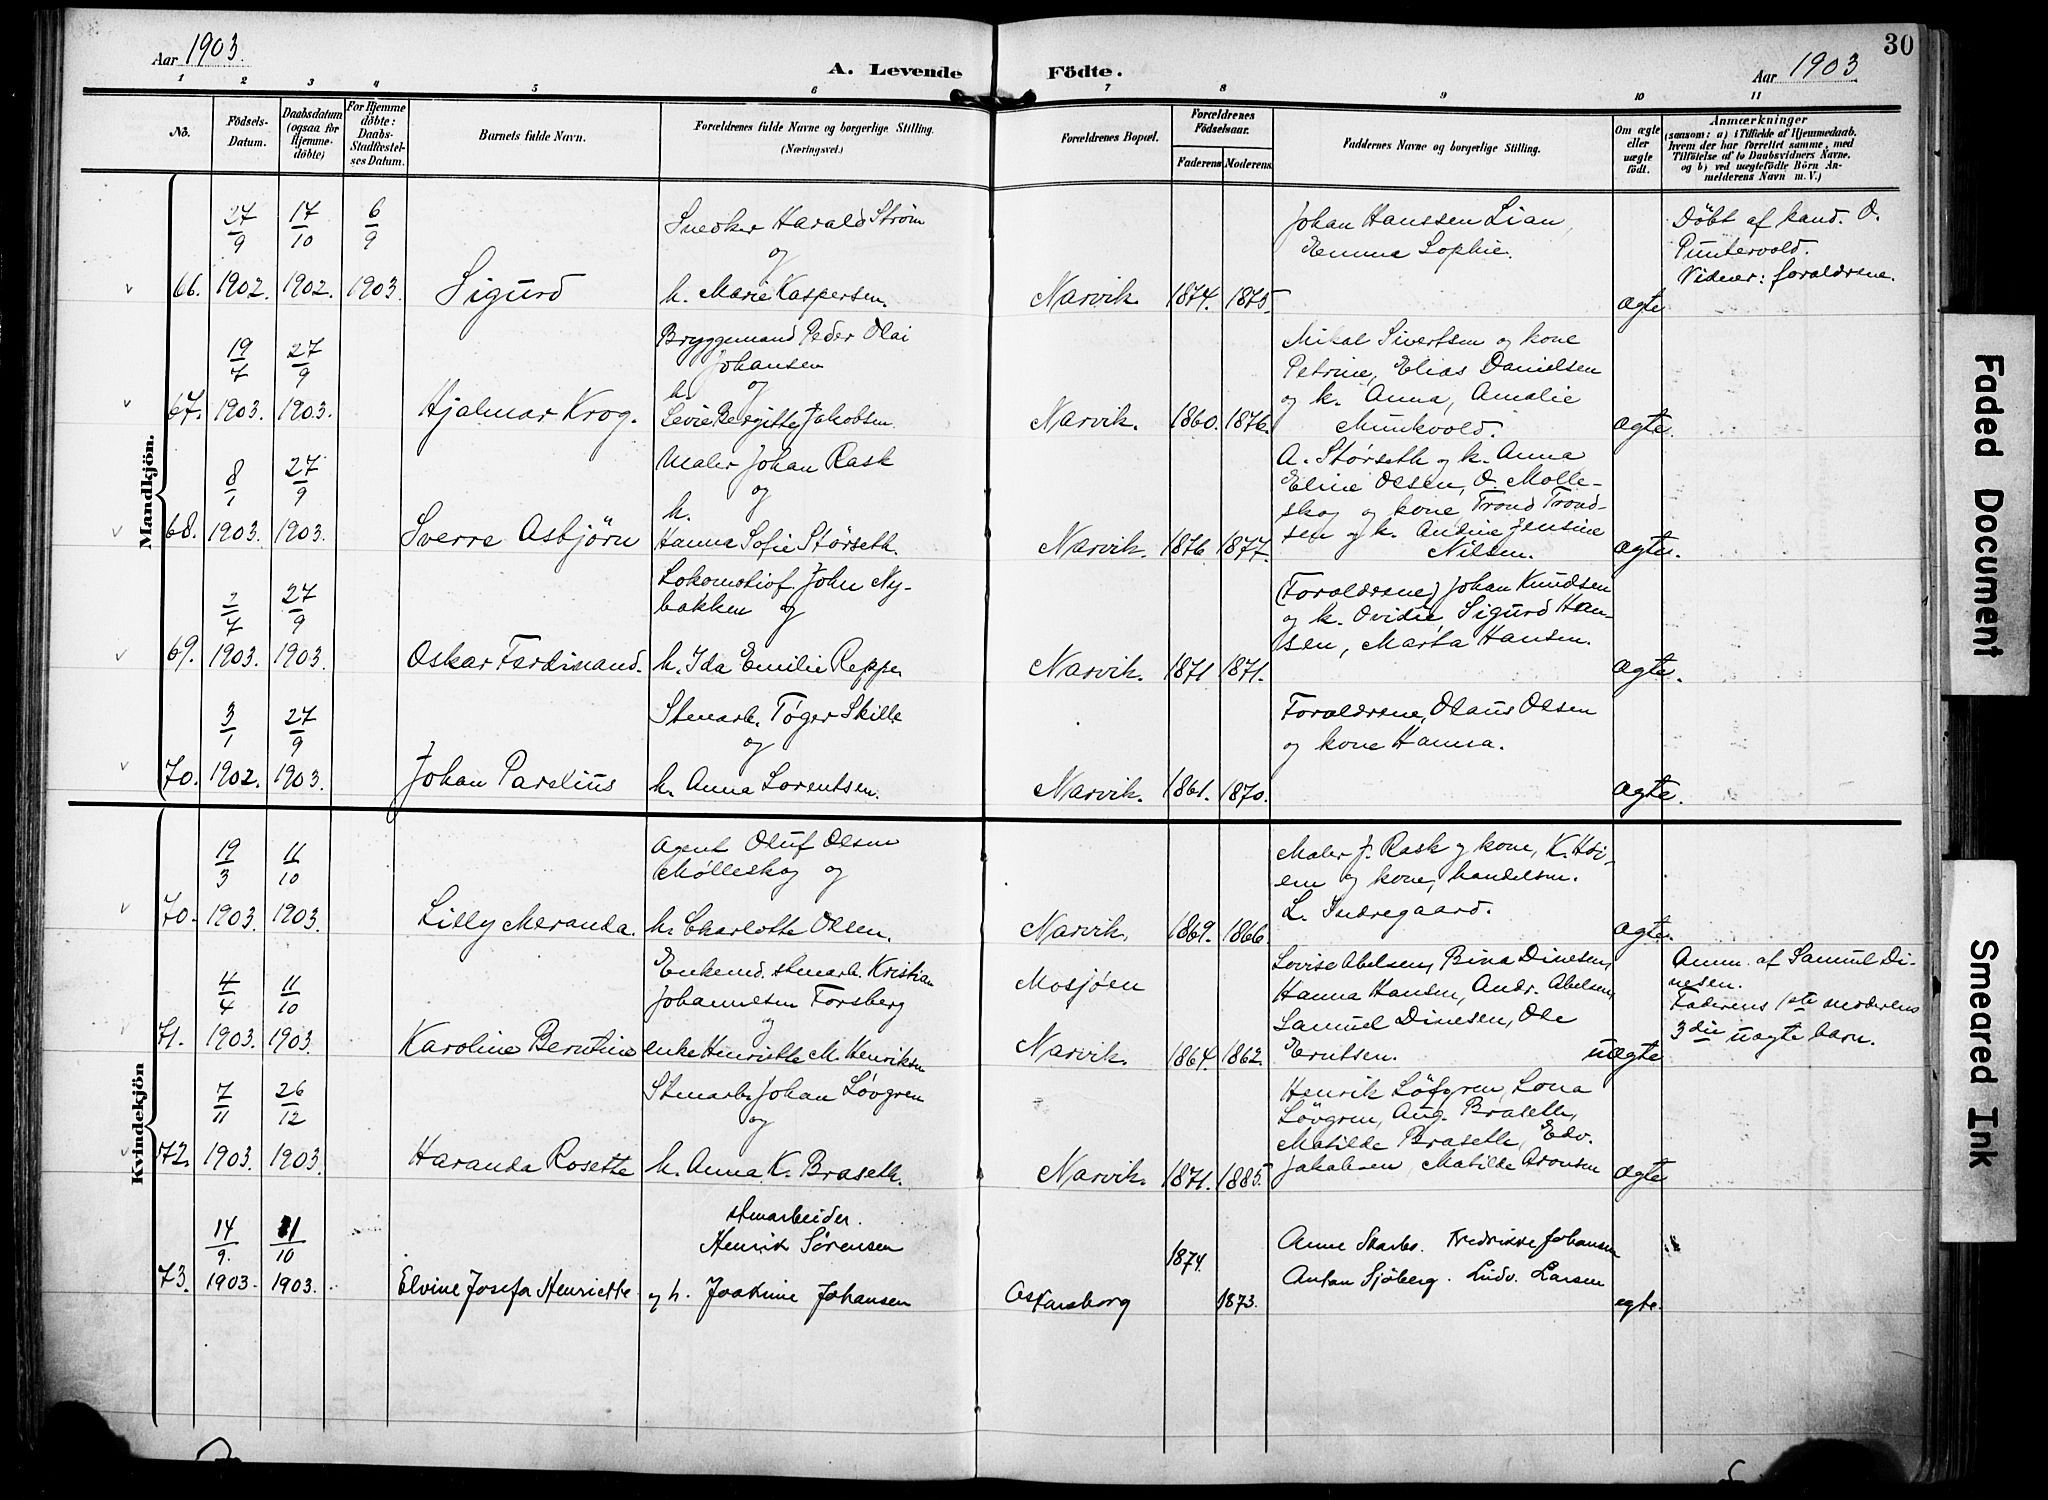 Aar 1903.
A. Levende Födte.
Aar 1903
30
1 2 3 4 5 6 7 8 9 10 11
No.
Födsels-
Datum.
Daabsdatum
(ogsaa for
Hjemme-
döbte)
For Hjemme
döbte:
Daabs-
Stadfæstel-
ses Datum.
Barnets fulde Navn.
Forældrenes fulde Navne og borgerlige Stilling.
(Næringsvei.)
Forældrenes Bopæl.
Forældrenes
Födselsaar.
Faderens
Moderens.
Faddernes Navne og borgerlige Stilling.
Om ægte
eller
uægte
födt.
Anmærkninger
(saasom: a) i Tilfælde af Hjemmedaab,
hvem der har forrettet samme, med
Tilföielse af to Daabsvidners Navne,
og b) ved uegtefödte Börn An-
melderens Navn m. V.)
Mandkjön.
27/9 17/10 6/9
66. 1902. 1902. 1903.
Sigurd
Snedker Harald Strøm
og
h. Marie Kaspersen.
Narvik. 1874. 1875.
Johan Hanssen Lian,
Emma Sophie.
ægte
Döbt af kand. O.
Puntervold.
Vidner: forældrene.
19/7 27/9
67. 1903. 1903.
Hjalmar Krog.
Bryggemand Peder Olai
Johansen
og
h.
Levie Bergitte Jakobsen.
Narvik. 1860. 1876.
Mikal Sivertsen og kone
Petrine, Elias Danielsen
og k. Anna, Amalie
Munkvold.
ægte.
8/1 27/9
68. 1903. 1903.
Sverre Asbjörn
Maler Johan Rask
og
h.
Hanna Sofie Størseth.
Narvik. 1876 1877.
A. Størseth og k. Anna
Eline Olsen, O. Mölle-
skog og kone Trond Trond-
sen og k. Antine Jensine
Nilsen.
ægte.
2/7 27/9
69. 1903. 1903.
Oskar Ferdinand.
Lokomotivf. John Ny-
bakken og
h. Ida Emilie Reppe.
Narvik. 1871 1871.
(Forældrene) Johan Knudsen
og k. Ovidie, Sigurd Han-
sen, Marta Hansen.
ægte.
3/1 27/9
70. 1902. 1903.
Johan Parelius
Stenarb. Töger Skille
og
h. Anna Lorentsen.
Narvik. 1861. 1870.
Forældrene, Olaus Olsen
og kone Hanna.
ægte.
Kvindekjön
19/3 11/10
70. 1903. 1903.
Lilly Meranda.
Agent Oluf Olsen
Mölleskog og
h. Charlotte Olsen.
Narvik. 1869. 1866.
Maler J. Rask og kone, K. Höi-
em og kone, handelsm.
L. Indregaard.
ægte.
4/4 11/10
71. 1903. 1903.
Karoline Berntine
Enkemd. stenarb. Kristian
Johannesen Forsberg
og
enke Henriette M. Henriksen
Mosjøen
Narvik. 1864. 1862.
Lovise Abelsen, Bina Dinesen,
Hanna Hansen, Andr. Abelsen,
Samuel Dinesen, Ole
Erntsen.
uægte
Anm. af Samuel Di-
nesen.
Faderens 1ste moderens
3die uægte barn.
7/11 26/12
72. 1903. 1903.
Haranda Rosette
Stenarb. Johan Lövgren
og
h. Anna K. Braseth.
Narvik. 1871. 1885.
Henrik Löfgren, Lona
Lövgren, Aug. Braseth,
Matilde Braseth, Edv.
Jakobsen, Matilde Aronsen
ægte
14/9. 11/10
73. 1903. 1903.
Elvine Josefa Henriette
stenarbeider.
Henrik Sørensen
og h. Joakime Johansen
Oskarsborg 1874. 1873.
Anne Skarbs. Fredrikke Johansen
Anton Sjöberg. Ludv. Larsen
egte.
Faded Document
Smeared Ink